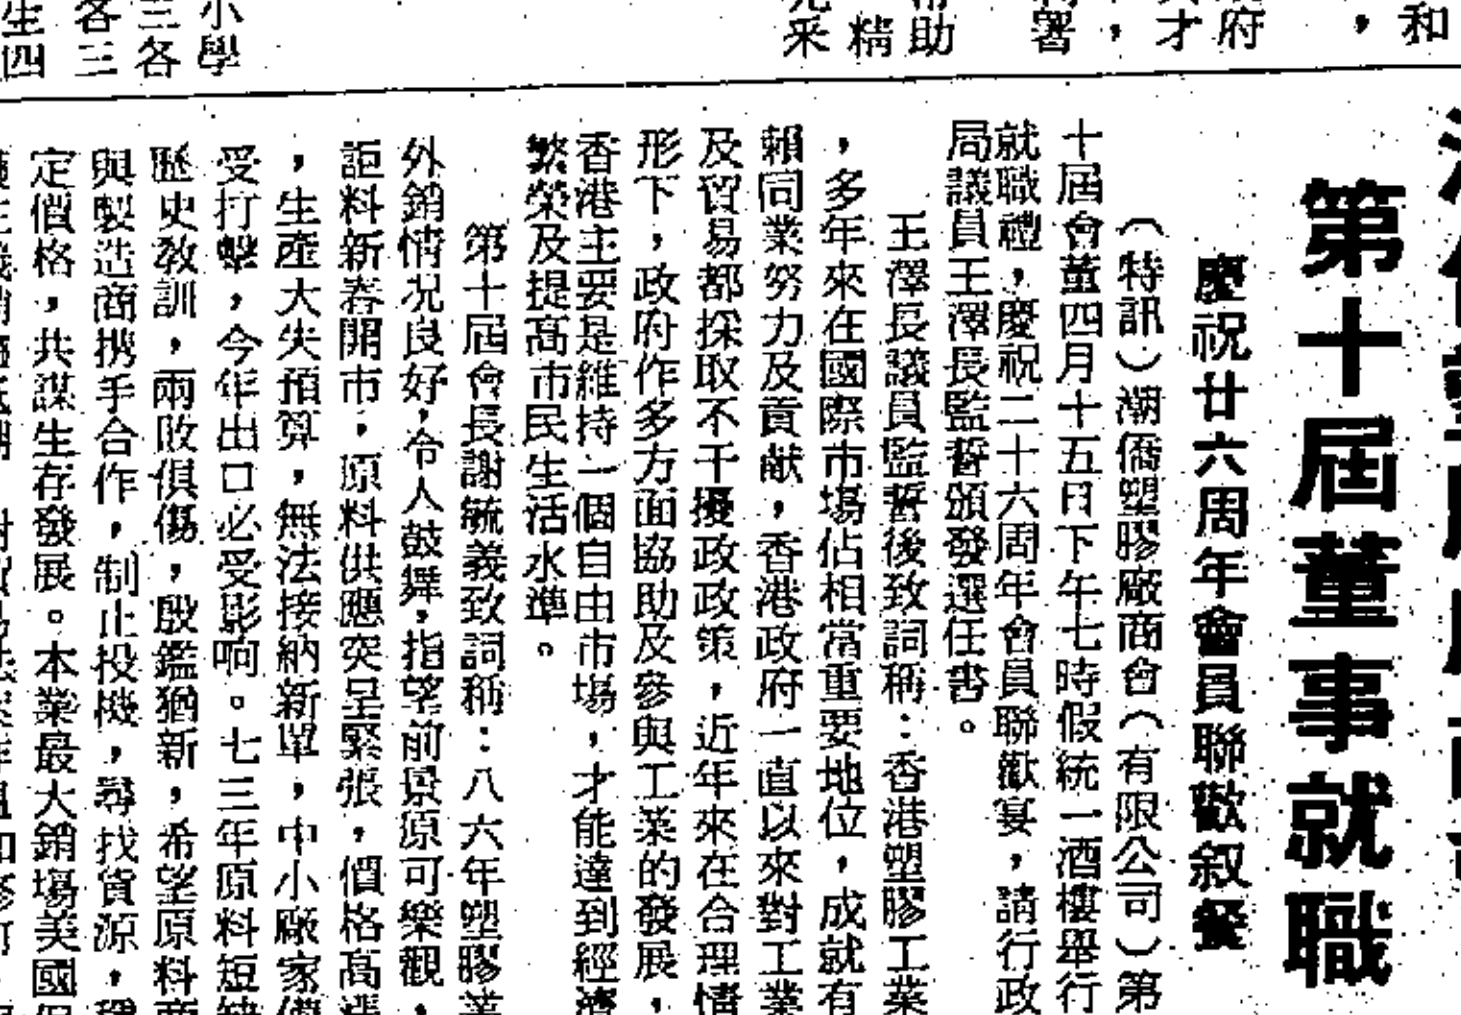 和
，
府
才
，
署
助
精
采
小學
各
各三
生四
第十屆董事就職
慶祝廿六周年會員聯歡叙餐
（特訊）潮僑塑膠廠商會（有限公司）第
十屆會董四月十五日下午七時假統一酒樓舉行
就職禮，慶祝二十六周年會員聯歡宴，請行政
局議員王澤長監誓頒發選任書。
王澤長議員監誓後致詞稱：香港塑膠工業
，多年來在國際市場佔相當重要地位，成就有
賴同業努力及貢献，香港政府一直以來對工業
及貿易都採取不干擾政政策，近年來在合理情
形下，政府作多方面協助及參與工業的發展，
香港主要是維持一個自由市場，才能達到經濟
繁榮及提高市民生活水準。
第十屆會長謝毓義致詞稱：八六年塑膠業
外銷情況良好，令人鼓舞，指望前景原可樂觀，
詎料新春開市，原料供應突呈緊張，價格高漲
，生產大失預算，無法接納新單，中小廠家備
受打擊，今年出口必受影响。七三年原料短缺
歷史教訓，兩敗俱傷，殷鑑猶新，希望原料商
與製造商携手合作，制止投機，尋找貨源，穩
定價格，共謀生存發展。本業最大銷場美國